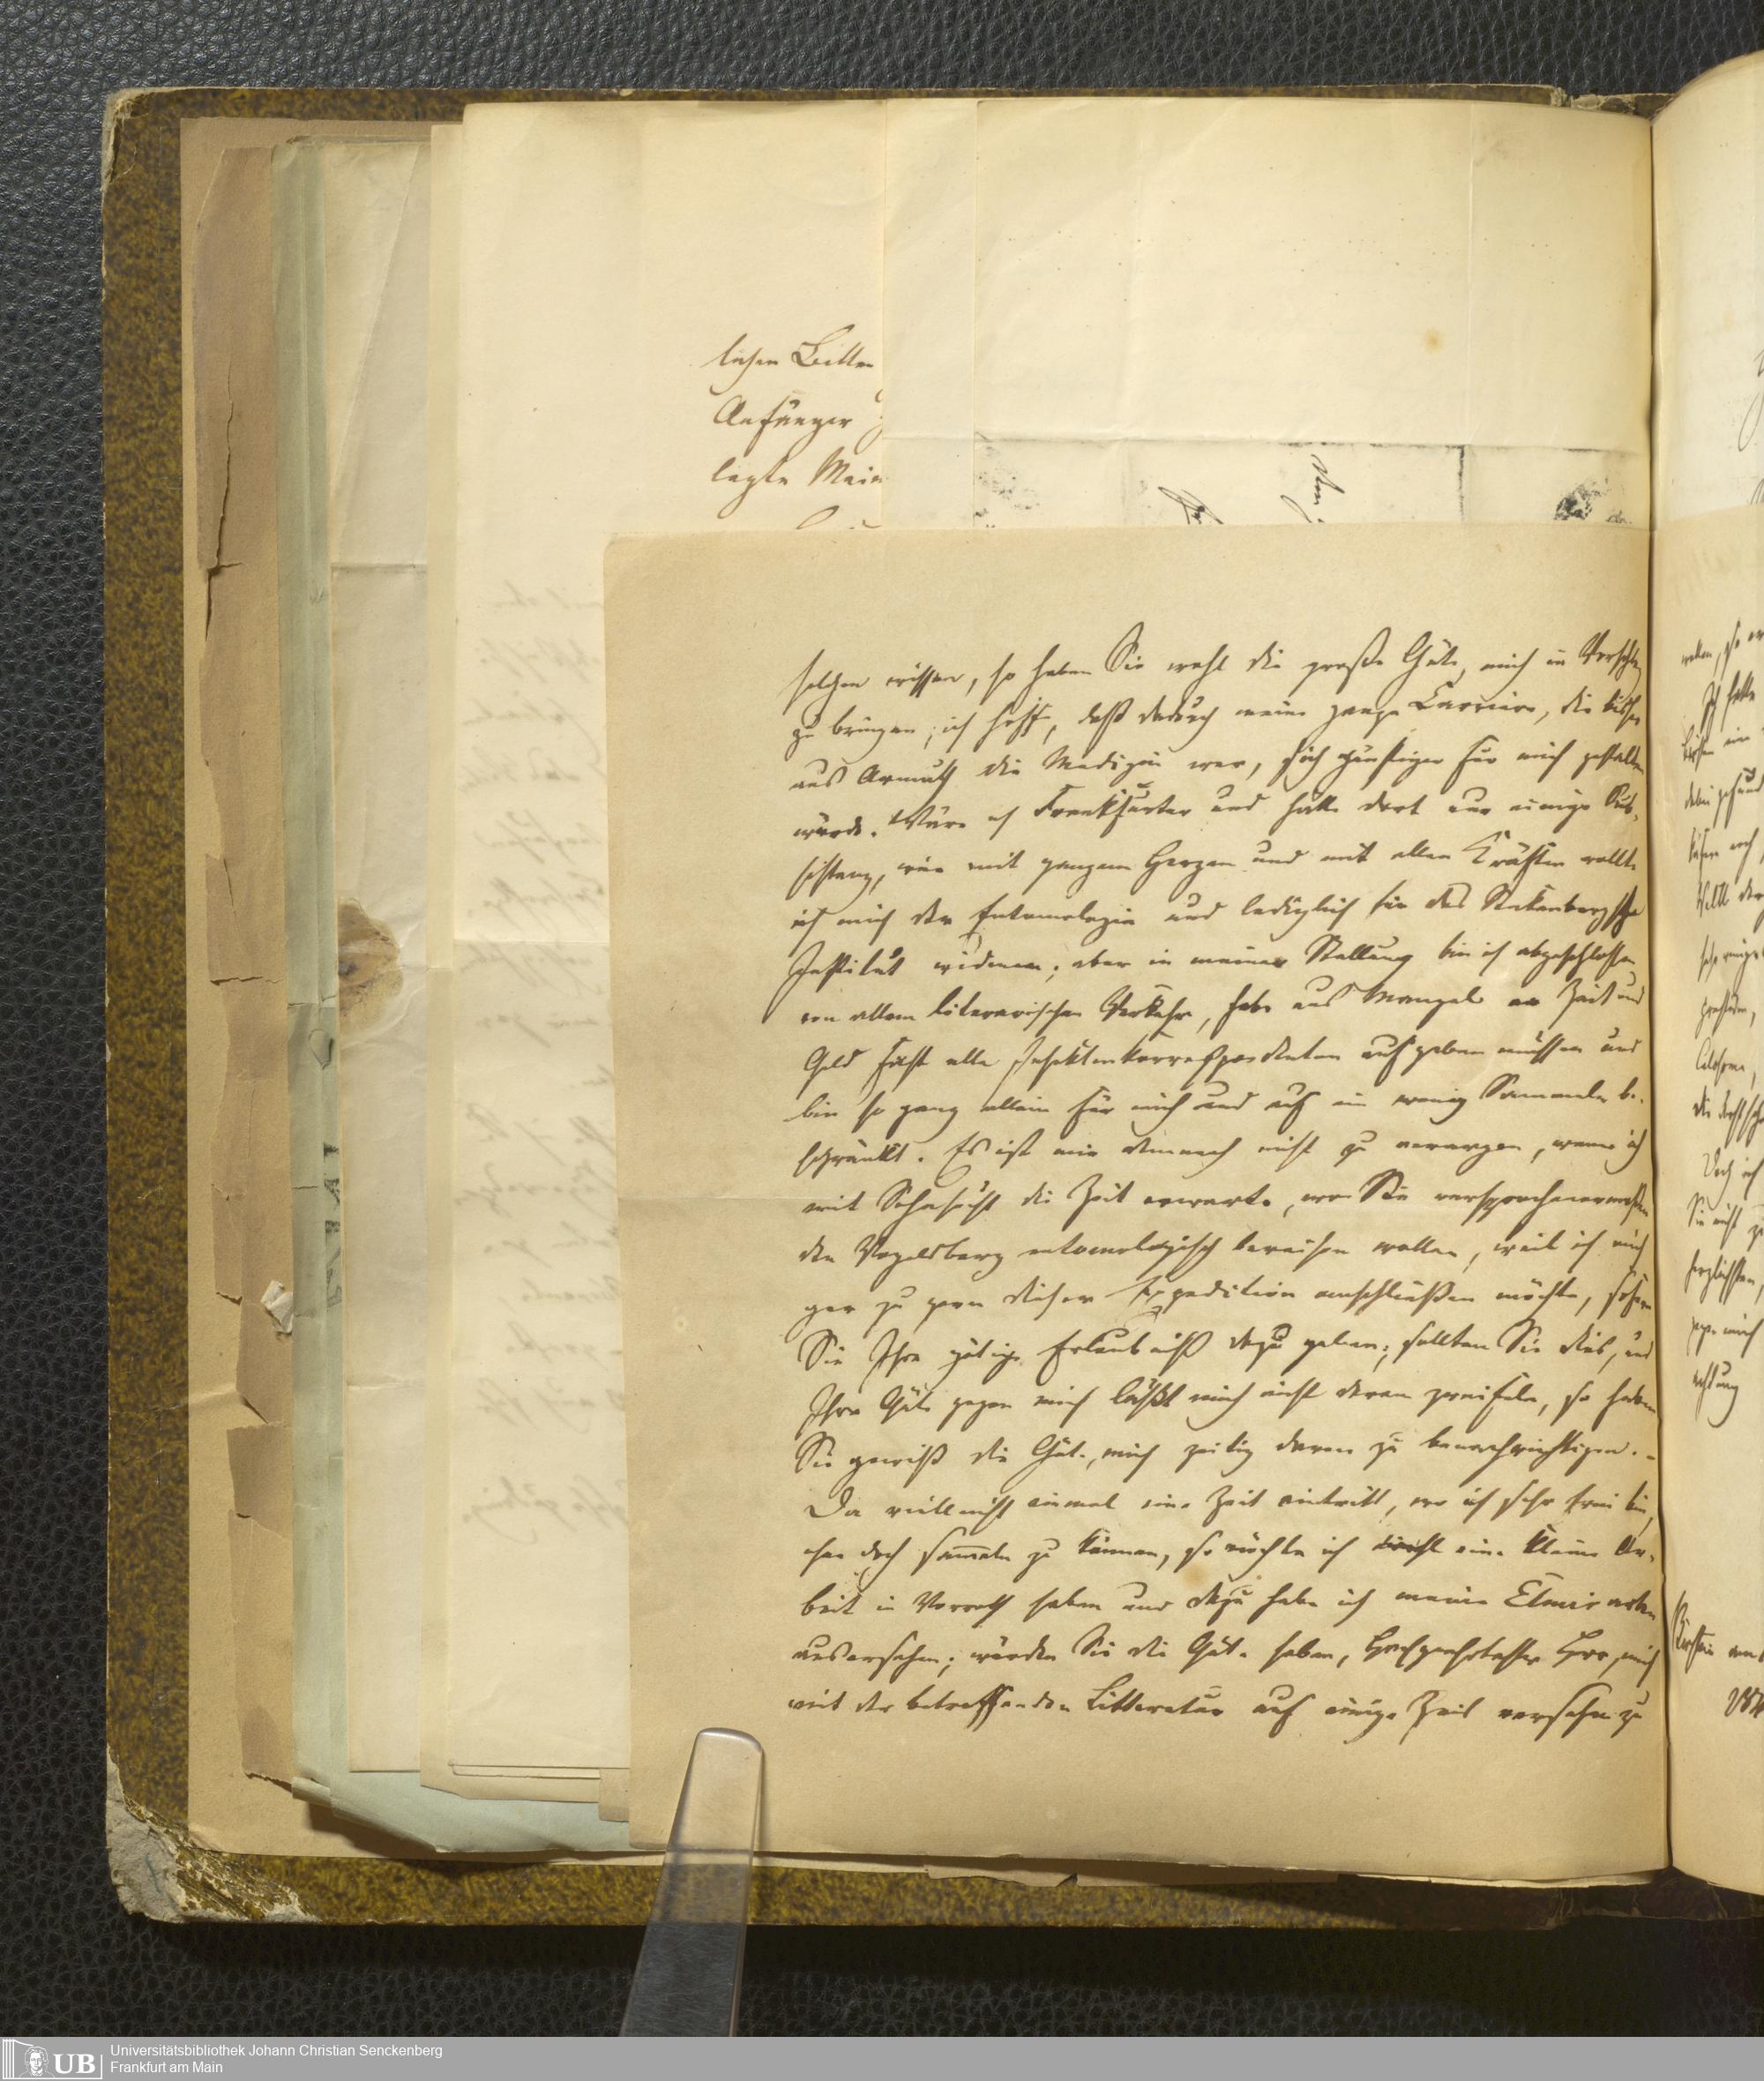 lichen Bitten
Anfänger
legte Main
solchen wissen, so haben Sie wohl die große Güte, mich in Vorschlag
zu bringen; ich hoffe, daß dadurch meine ganze Carriere, die bisher
aus Armuth die Medizin war, sich günstiger für mich gestalten
würde. Wäre ich Frankfurter und hätte dort nur einige Sub-
sistenz, wie mit ganzem Herzen und mit allen Kräften wollte
ich mich der Entomologie und lediglich für das Senkenbergsche
Institut widmen; aber in meiner Stellung bin ich abgeschlossen
von allem literarischen Verkehr, habe aus Mangel an Zeit und
Geld fast alle Insektenkorrespondenten aufgeben müssen und
bin so ganz allein für mich und auf ein wenig Sammeln be-
schränkt. Es ist mir demnach nicht zu verargen, wenn ich
mit Sehnsucht die Zeit erwarte, wo Sie versprochenermaßen
den Vogelsberg entomologisch bereisen wollen, weil ich mich
gar zu gern dieser Expedition anschließen möchte, sofern
Sie Ihre gütige Erlaubniß dazu geben; sollten Sie dies, und
Ihre Güte gegen mich läßt mich nicht daran zweifeln, so haben
Sie gewiß die Güte, mich zeitig davon zu benachrichtigen. –
Da vielleicht einmal eine Zeit eintritt, wo ich sehr frei bin,
ohne doch sammeln zu können, so möchte ich eine kleine Ar-
beit in Vorrath haben und dazu habe ich meine Elmisarten
ausersehen; würden Sie die Güte haben, Hochgeehrtester Herr, mich
mit der betreffenden Litteratur auf einige Zeit versehen zu
Ich hatte
Doch ich
Sie nicht zu
herzlichsten
gegen mich
achtung
Universitätsbibliothek Johann Christian Senckenberg
Frankfurt am Main
UB